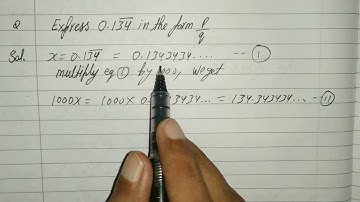 Q Express 0.13̅4̅ in the form p/q
Sol. x = 0.13̅4̅ = 0.1343434.... -- ①
multiply eq ① by we get
1000x = 1000 x 0. 13434... = 134.343434... - ⑪